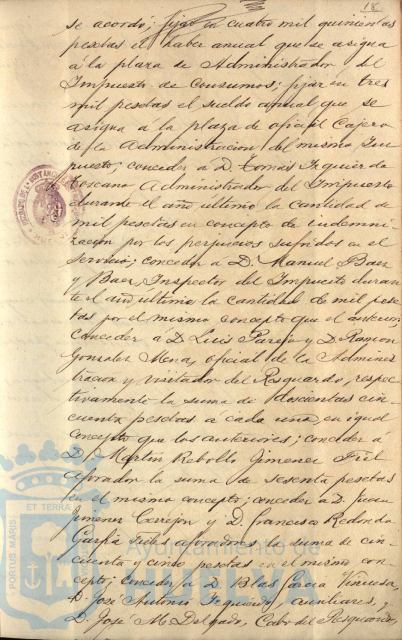 18
se acordó: fijar en cuatro mil quinientas
pesetas el haber anual que se asigna
á la plaza de Administrador del
Impuesto de Consumos; fijar en tres
mil pesetas el sueldo anual que se
asigna á la plaza de oficial Cajero
de la Administracion del mismo Im
puesto; conceder á D. Tomás Izquierdo
Toscano Administrador del Impuesto
durante el año ultimo la cantidad de
mil pesetas en concepto de indemni
zacion por los perjuicios sufridos en el
Servicio; conceder á D. Manuel Baez
y Baez, Inspector del Impuesto duran
te el año ultimo la cantidad de mil pese
tas por el mismo concepto que el anterior;
conceder á D. Luis Parejo y D. Ramon
Gonzalez Mena, oficial de la Adminis
tracion y visitador del Resguardo, respec
tivamente la suma de doscientas cin
cuenta pesetas á cada uno, en igual
concepto que los anteriores; conceder á
D. Martin Rebollo Jimenez Fiel
aforador la suma de sesenta pesetas
en el mismo concepto; conceder á D. Juan
Jimenez Carrejon y D. Francisco Redondo
Garfia fieles aforadores la suma de cin
cuenta y cinco pesetas en el mismo con
cepto; conceder á D. Blas Garcia
D. José Antonio Izquierdo, Auxiliares, y
D. José M. Delgado, Cabo del Resguardo,
PORTUS MARIS
ET TERRAE
Ayuntamiento de
HUELVA